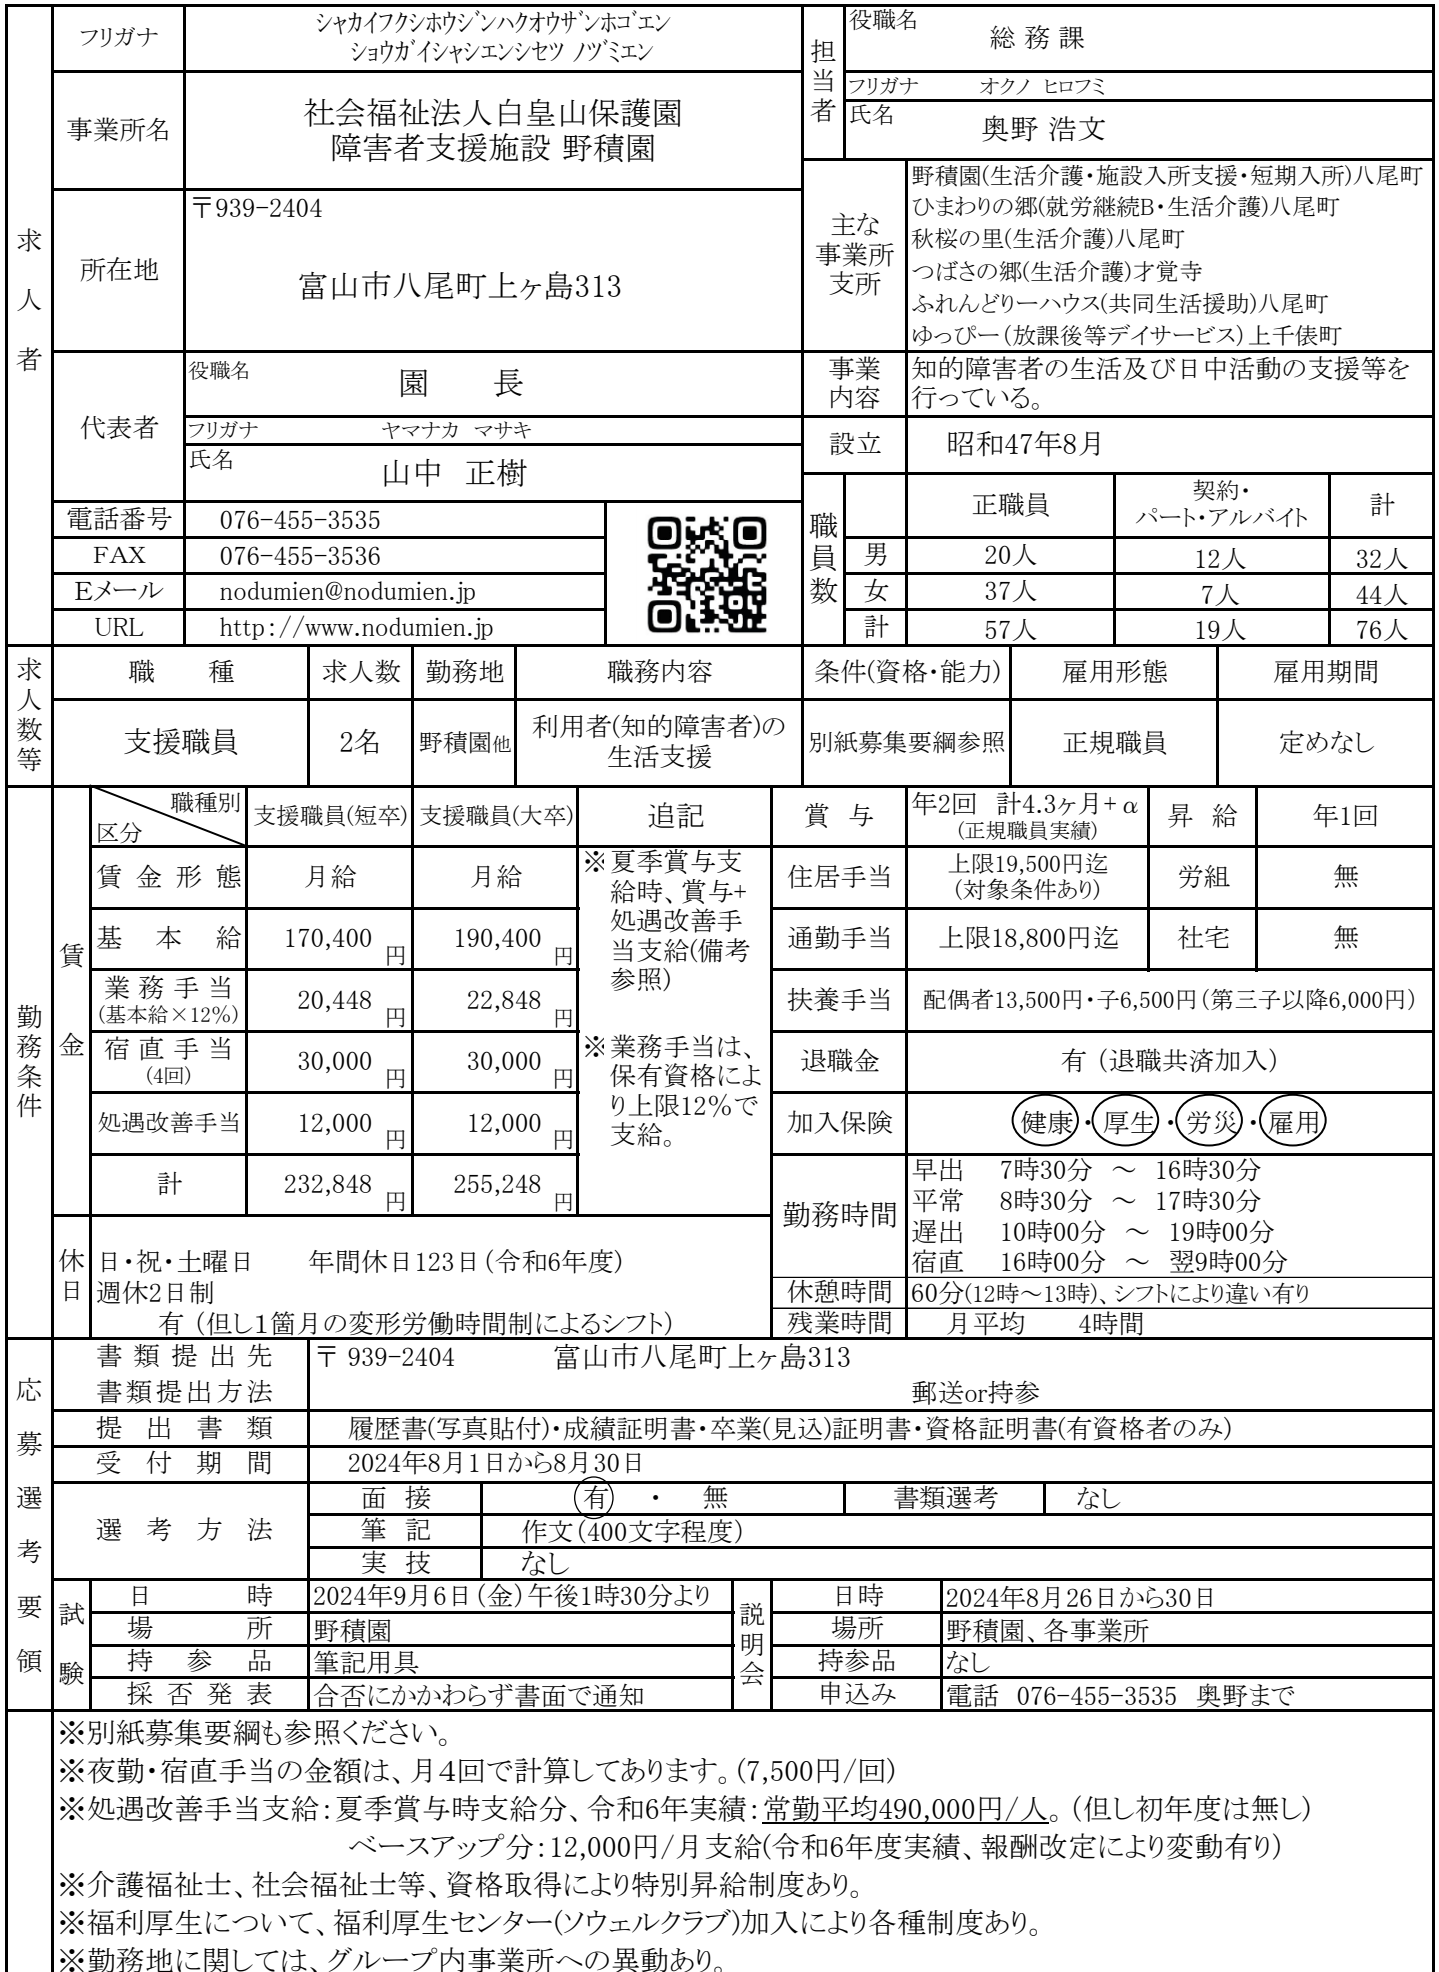 求人者
フリガナ
シャカイフクシホウジンハクオウザンホゴエン
ショウガイシャシエンシセツ ノヅミエン
事業所名
社会福祉法人白皇山保護園
障害者支援施設 野積園
所在地
〒939-2404
富山市八尾町上ヶ島313
代表者
役職名 園 長
フリガナ ヤマナカ マサキ
氏名 山中 正樹
電話番号 076-455-3535
FAX 076-455-3536
Eメール nodumien@nodumien.jp
URL http://www.nodumien.jp
担当者
役職名 総務課
フリガナ オクノ ヒロフミ
氏名 奥野 浩文
主な
事業所
支所
野積園(生活介護・施設入所支援・短期入所)八尾町
ひまわりの郷(就労継続B・生活介護)八尾町
秋桜の里(生活介護)八尾町
つばさの郷(生活介護)才覚寺
ふれんどりーハウス(共同生活援助)八尾町
ゆっぴー(放課後等デイサービス)上千俵町
事業
内容
知的障害者の生活及び日中活動の支援等を
行っている。
設立 昭和47年8月
職員数
正職員 契約・
パート・アルバイト 計
男 20人 12人 32人
女 37人 7人 44人
計 57人 19人 76人
求人数等
職 種 求人数 勤務地 職務内容 条件(資格・能力) 雇用形態 雇用期間
支援職員 2名 野積園他 利用者(知的障害者)の
生活支援 別紙募集要綱参照 正規職員 定めなし
勤務条件
賃金
職種別
区分
支援職員(短卒) 支援職員(大卒) 追記
賃金形態 月給 月給
基本給 170,400円 190,400円
業務手当
(基本給×12%)
20,448円 22,848円
宿直手当
(4回)
30,000円 30,000円
処遇改善手当 12,000円 12,000円
計 232,848円 255,248円
※夏季賞与支
給時、賞与+
処遇改善手
当支給(備考
参照)
※業務手当は、
保有資格によ
り上限12%で
支給。
賞与 年2回 計4.3ヶ月+α
(正規職員実績)
昇給 年1回
住居手当 上限19,500円迄
(対象条件あり)
労組 無
通勤手当 上限18,800円迄 社宅 無
扶養手当 配偶者13,500円・子6,500円(第三子以降6,000円)
退職金 有(退職共済加入)
加入保険 健康・厚生・労災・雇用
勤務時間
早出 7時30分 ~ 16時30分
平常 8時30分 ~ 17時30分
遅出 10時00分 ~ 19時00分
宿直 16時00分 ~ 翌9時00分
休憩時間 60分(12時~13時)、シフトにより違い有り
残業時間 月平均 4時間
休日
日・祝・土曜日 年間休日123日(令和6年度)
週休2日制
有(但し1箇月の変形労働時間制によるシフト)
応募選考要領
書類提出先 〒939-2404 富山市八尾町上ヶ島313
書類提出方法 郵送or持参
提出書類 履歴書(写真貼付)・成績証明書・卒業(見込)証明書・資格証明書(有資格者のみ)
受付期間 2024年8月1日から8月30日
選考方法
面接 有 ・ 無 書類選考 なし
筆記 作文(400文字程度)
実技 なし
試験
日時 2024年9月6日(金)午後1時30分より
場所 野積園
持参品 筆記用具
採否発表 合否にかかわらず書面で通知
説明会
日時 2024年8月26日から30日
場所 野積園、各事業所
持参品 なし
申込み 電話 076-455-3535 奥野まで
※別紙募集要綱も参照ください。
※夜勤・宿直手当の金額は、月4回で計算してあります。(7,500円/回)
※処遇改善手当支給:夏季賞与時支給分、令和6年実績:常勤平均490,000円/人。(但し初年度は無し)
ベースアップ分:12,000円/月支給(令和6年度実績、報酬改定により変動有り)
※介護福祉士、社会福祉士等、資格取得により特別昇給制度あり。
※福利厚生について、福利厚生センター(ソウェルクラブ)加入により各種制度あり。
※勤務地に関しては、グループ内事業所への異動あり。